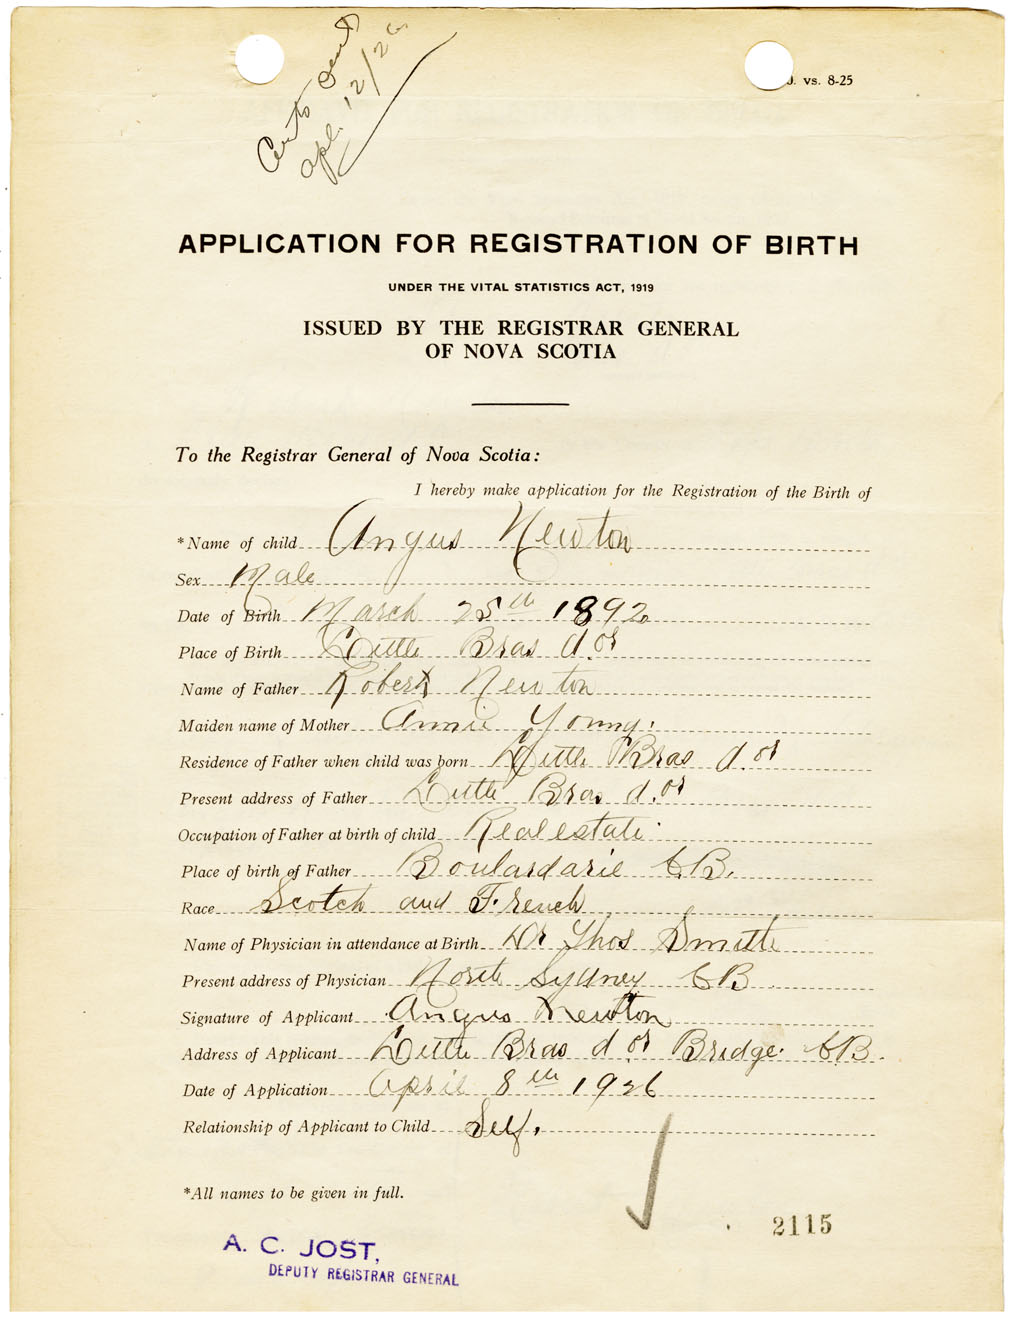 Certs Sent
Apl. 12/26
. vs. 8-25
APPLICATION FOR REGISTRATION OF BIRTH
UNDER THE VITAL STATISTICS ACT, 1919
ISSUED BY THE REGISTRAR GENERAL
OF NOVA SCOTIA
To the Registrar General of Nova Scotia:
I hereby make application for the Registration of the Birth of
*Name of child Angus Newton
Sex Male
Date of Birth March 25th 1892
Place of Birth Little Bras d.or
Name of Father Robert Newton
Maiden name of Mother Annie Young.
Residence of Father when child was born Little Bras d.or
Present address of Father Little Bras d.or
Occupation of Father at birth of child Real estate.
Place of birth of Father Boulardarie C.B.
Race Scotch and French
Name of Physician in attendance at Birth Dr Thos Smith
Present address of Physician North Sydney C B
Signature of Applicant Angus Newton
Address of Applicant Little Bras d or Bridge. C.B.
Date of Application April 8th 1926
Relationship of Applicant to Child Self.
*All names to be given in full.
2115
A. C. JOST,
DEPUTY REGISTRAR GENERAL